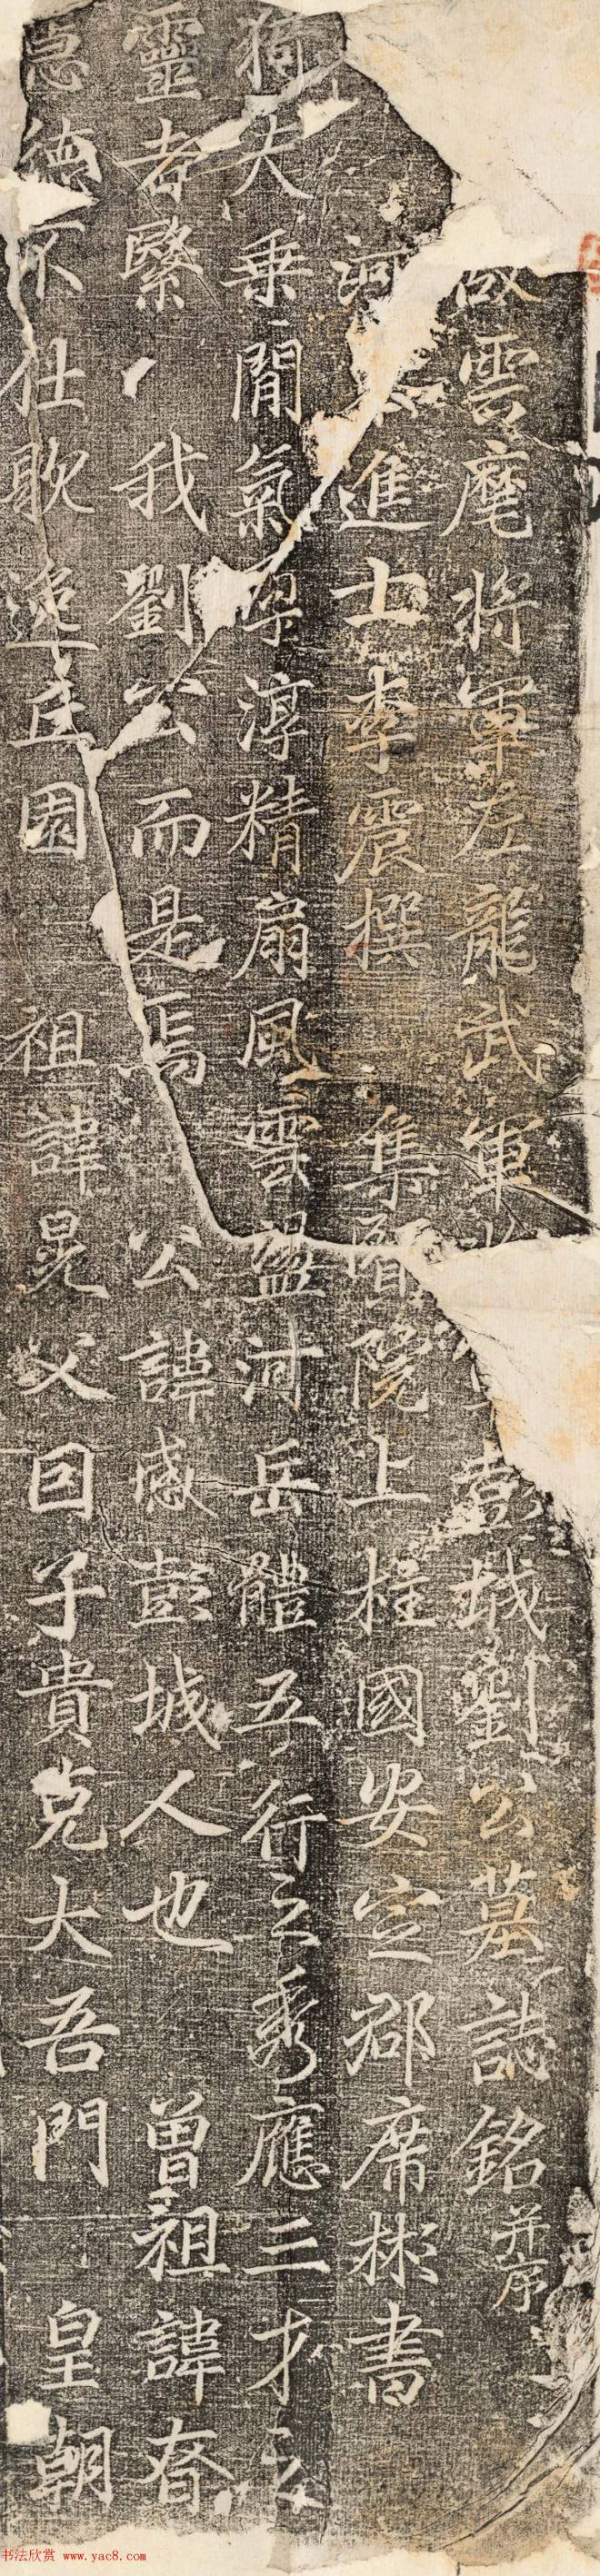 雲麾將軍左龍武軍彭城劉公墓誌銘并序
河進士李震撰 集賢院上柱國安定郡席彬書
猗夫乘閒氣孕淳精扇風雲盪河岳體五行之秀應三才之
靈者繄我劉公而是焉 公諱感彭城人也 曾祖諱眘
息德不仕歌逸丘園 祖諱晃父因子貴克大吾門 皇朝
书法欣赏 www.yac8.com